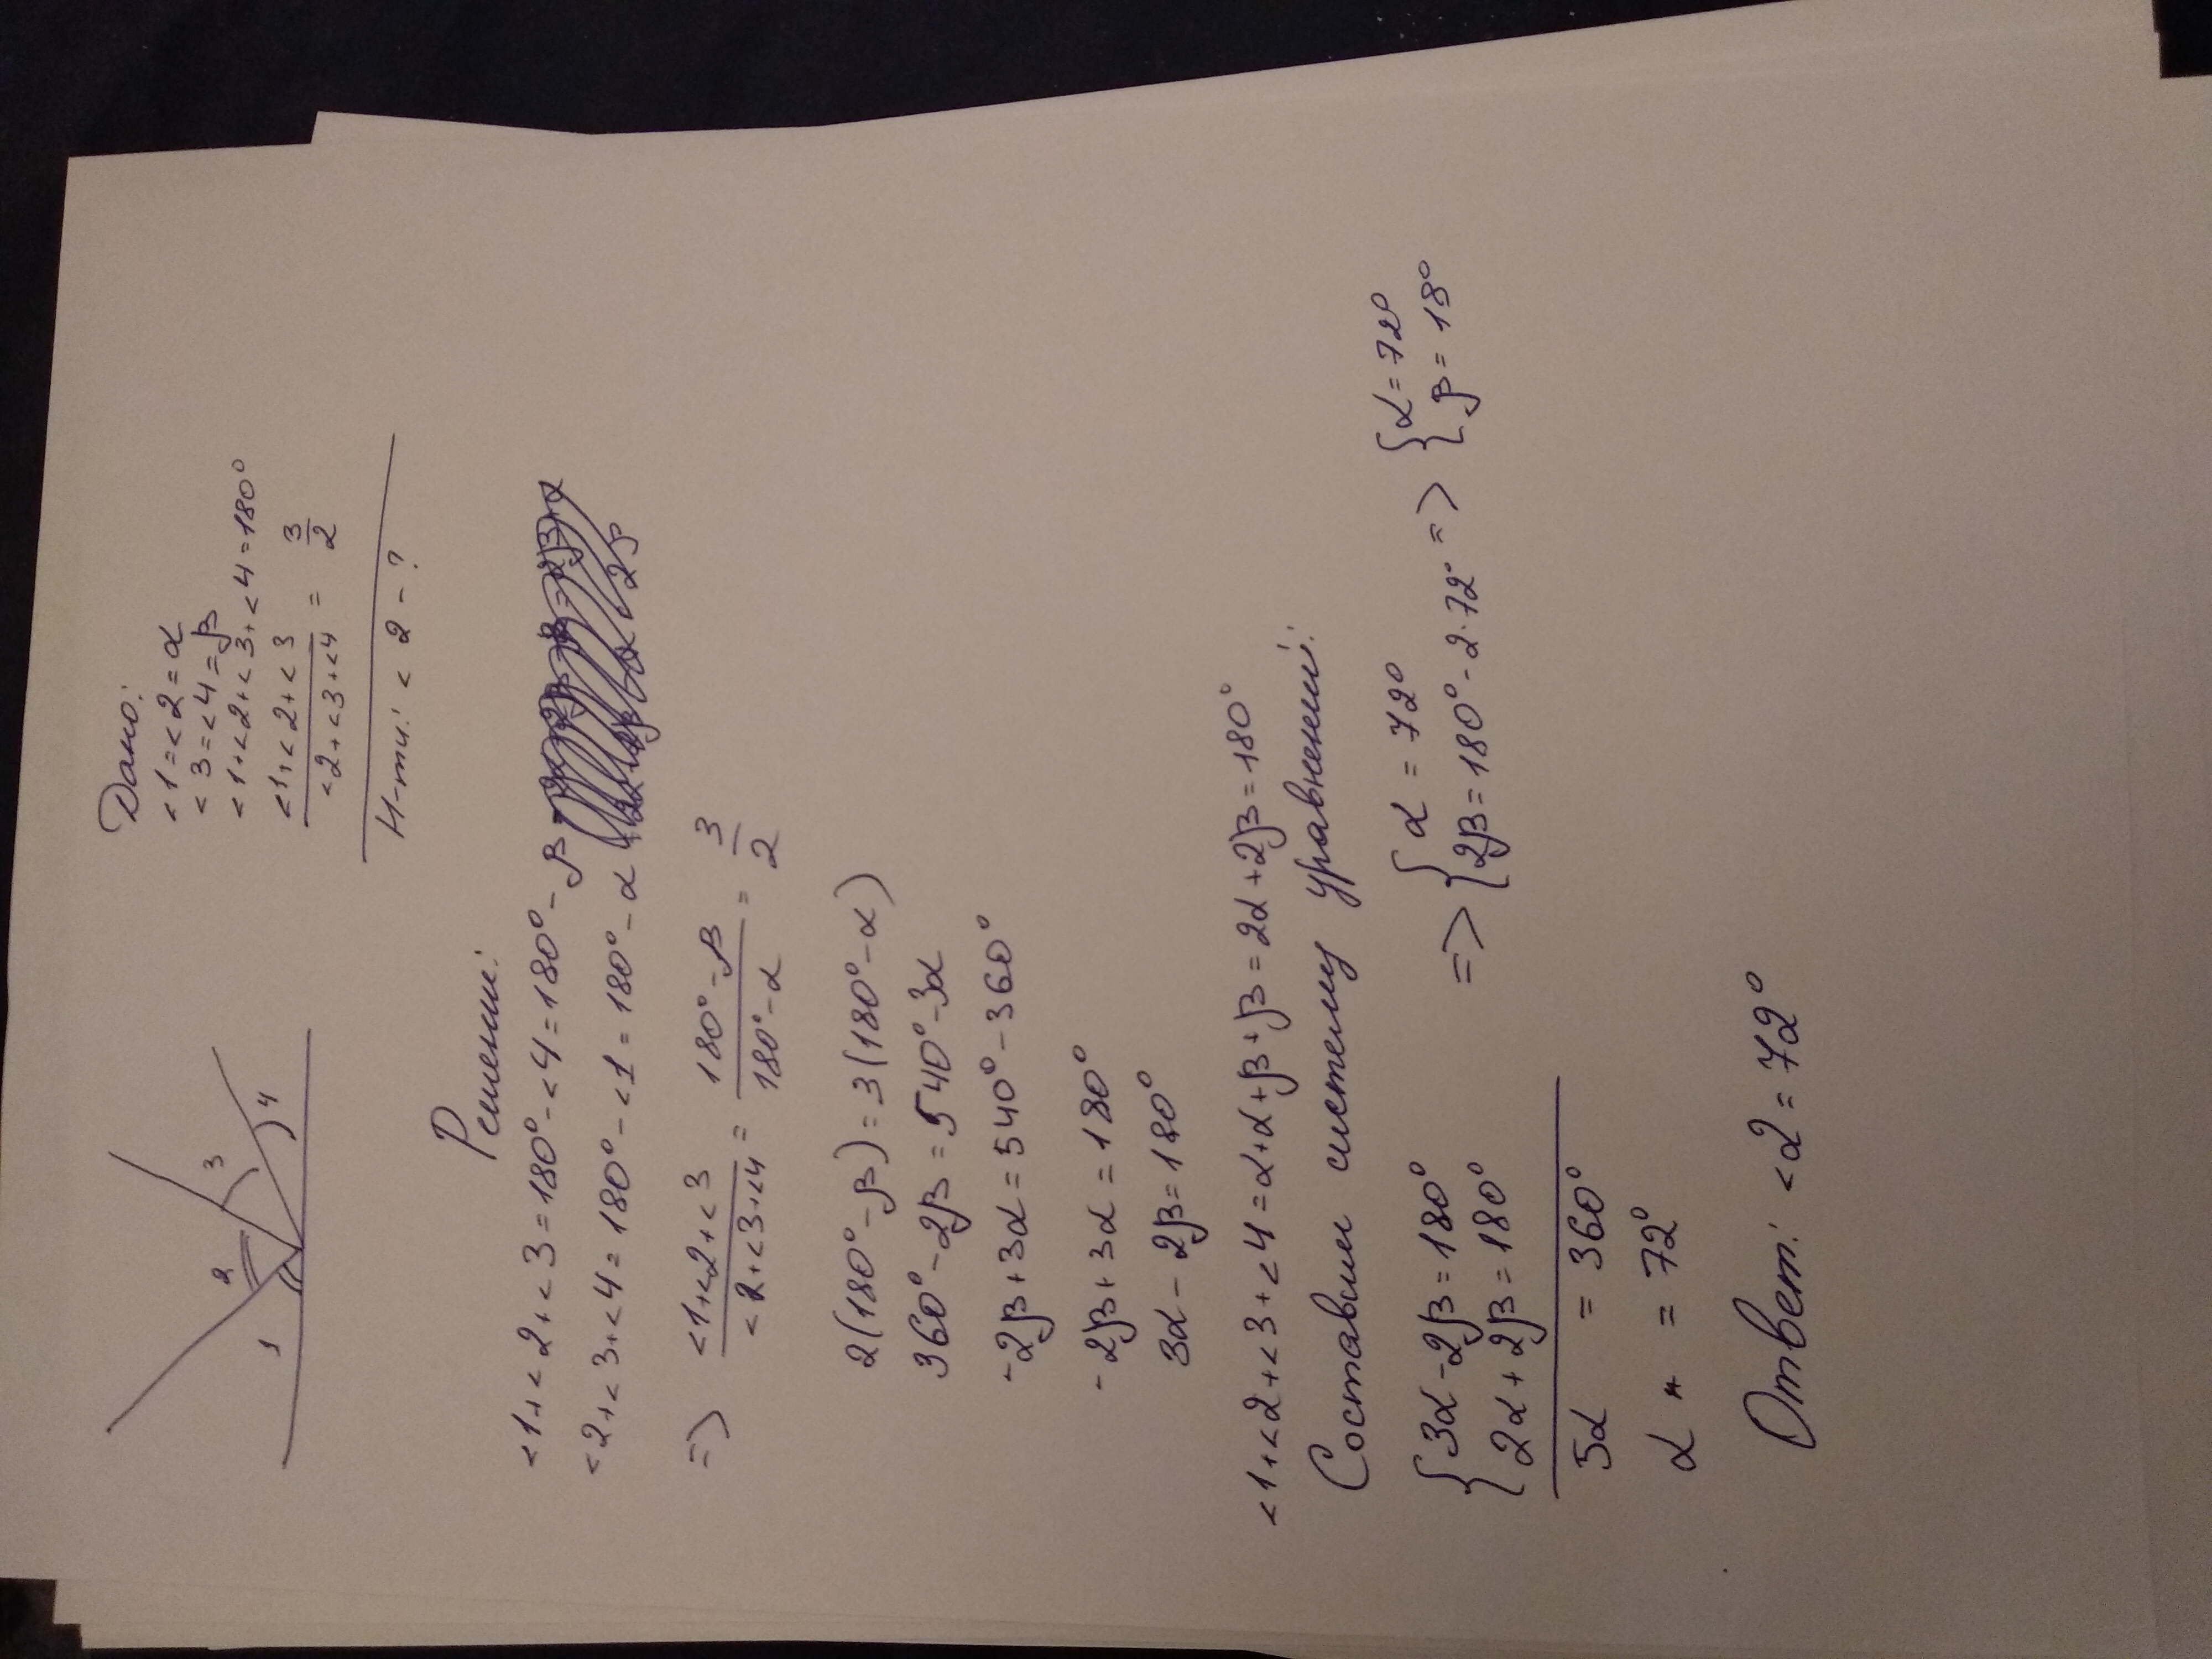 Дано:
<1=<2=α
<3=<4=β
<1+<2+<3+<4=180°
<1+<2+<3 / <2+<3+<4 = 3/2
Н-ти: <2-?
1
2
3
4
Решени:
<1+<2+<3=180°-<4=180°-β
<2+<3+<4=180°-<1=180°-α
=> <1+<2+<3 / <2+<3+<4 = 180°-β / 180°-α = 3/2
2(180°-β)=3(180°-α)
360°-2β=540°-3α
-2β+3α=540°-360°
-2β+3α=180°
3α-2β=180°
<1+<2+<3+<4=α+α+β+β=2α+2β=180°
Составим систему уравнений:
{3α-2β=180°
2α+2β=180°
5α = 360°
α = 72°
=> {α=72°
2β=180°-2·72° => {α=72°
β=18°
Ответ: <2=72°